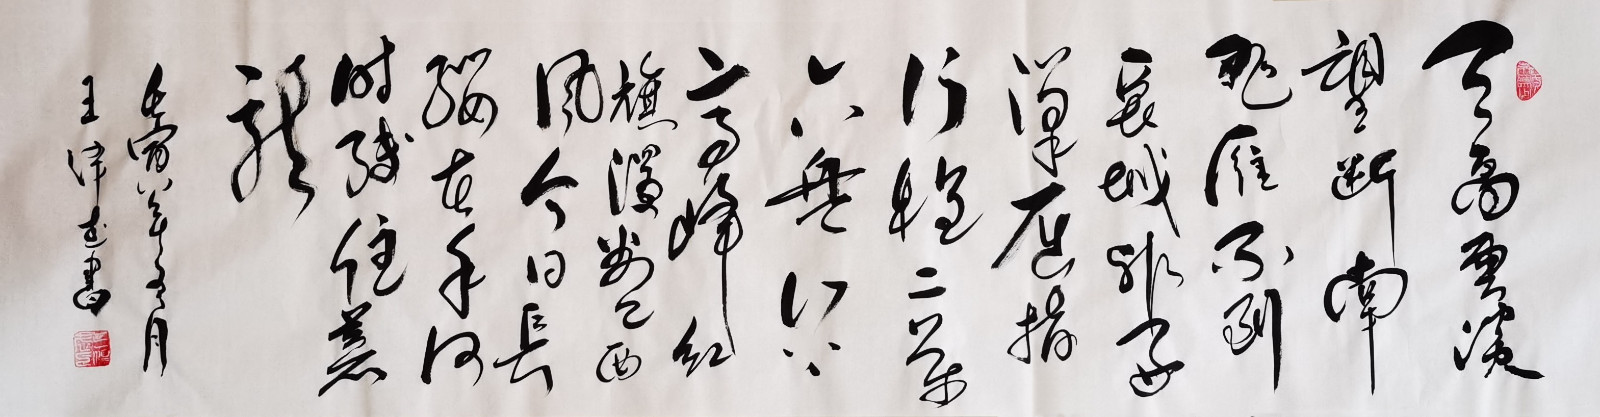 天高雲淡
望断南
飛雁不到
長城非好
漢屈指
行程二萬
六盤山上
高峰紅
旗漫卷西
風今日長
纓在手何
时縛住蒼
龍
壬寅年月
王書